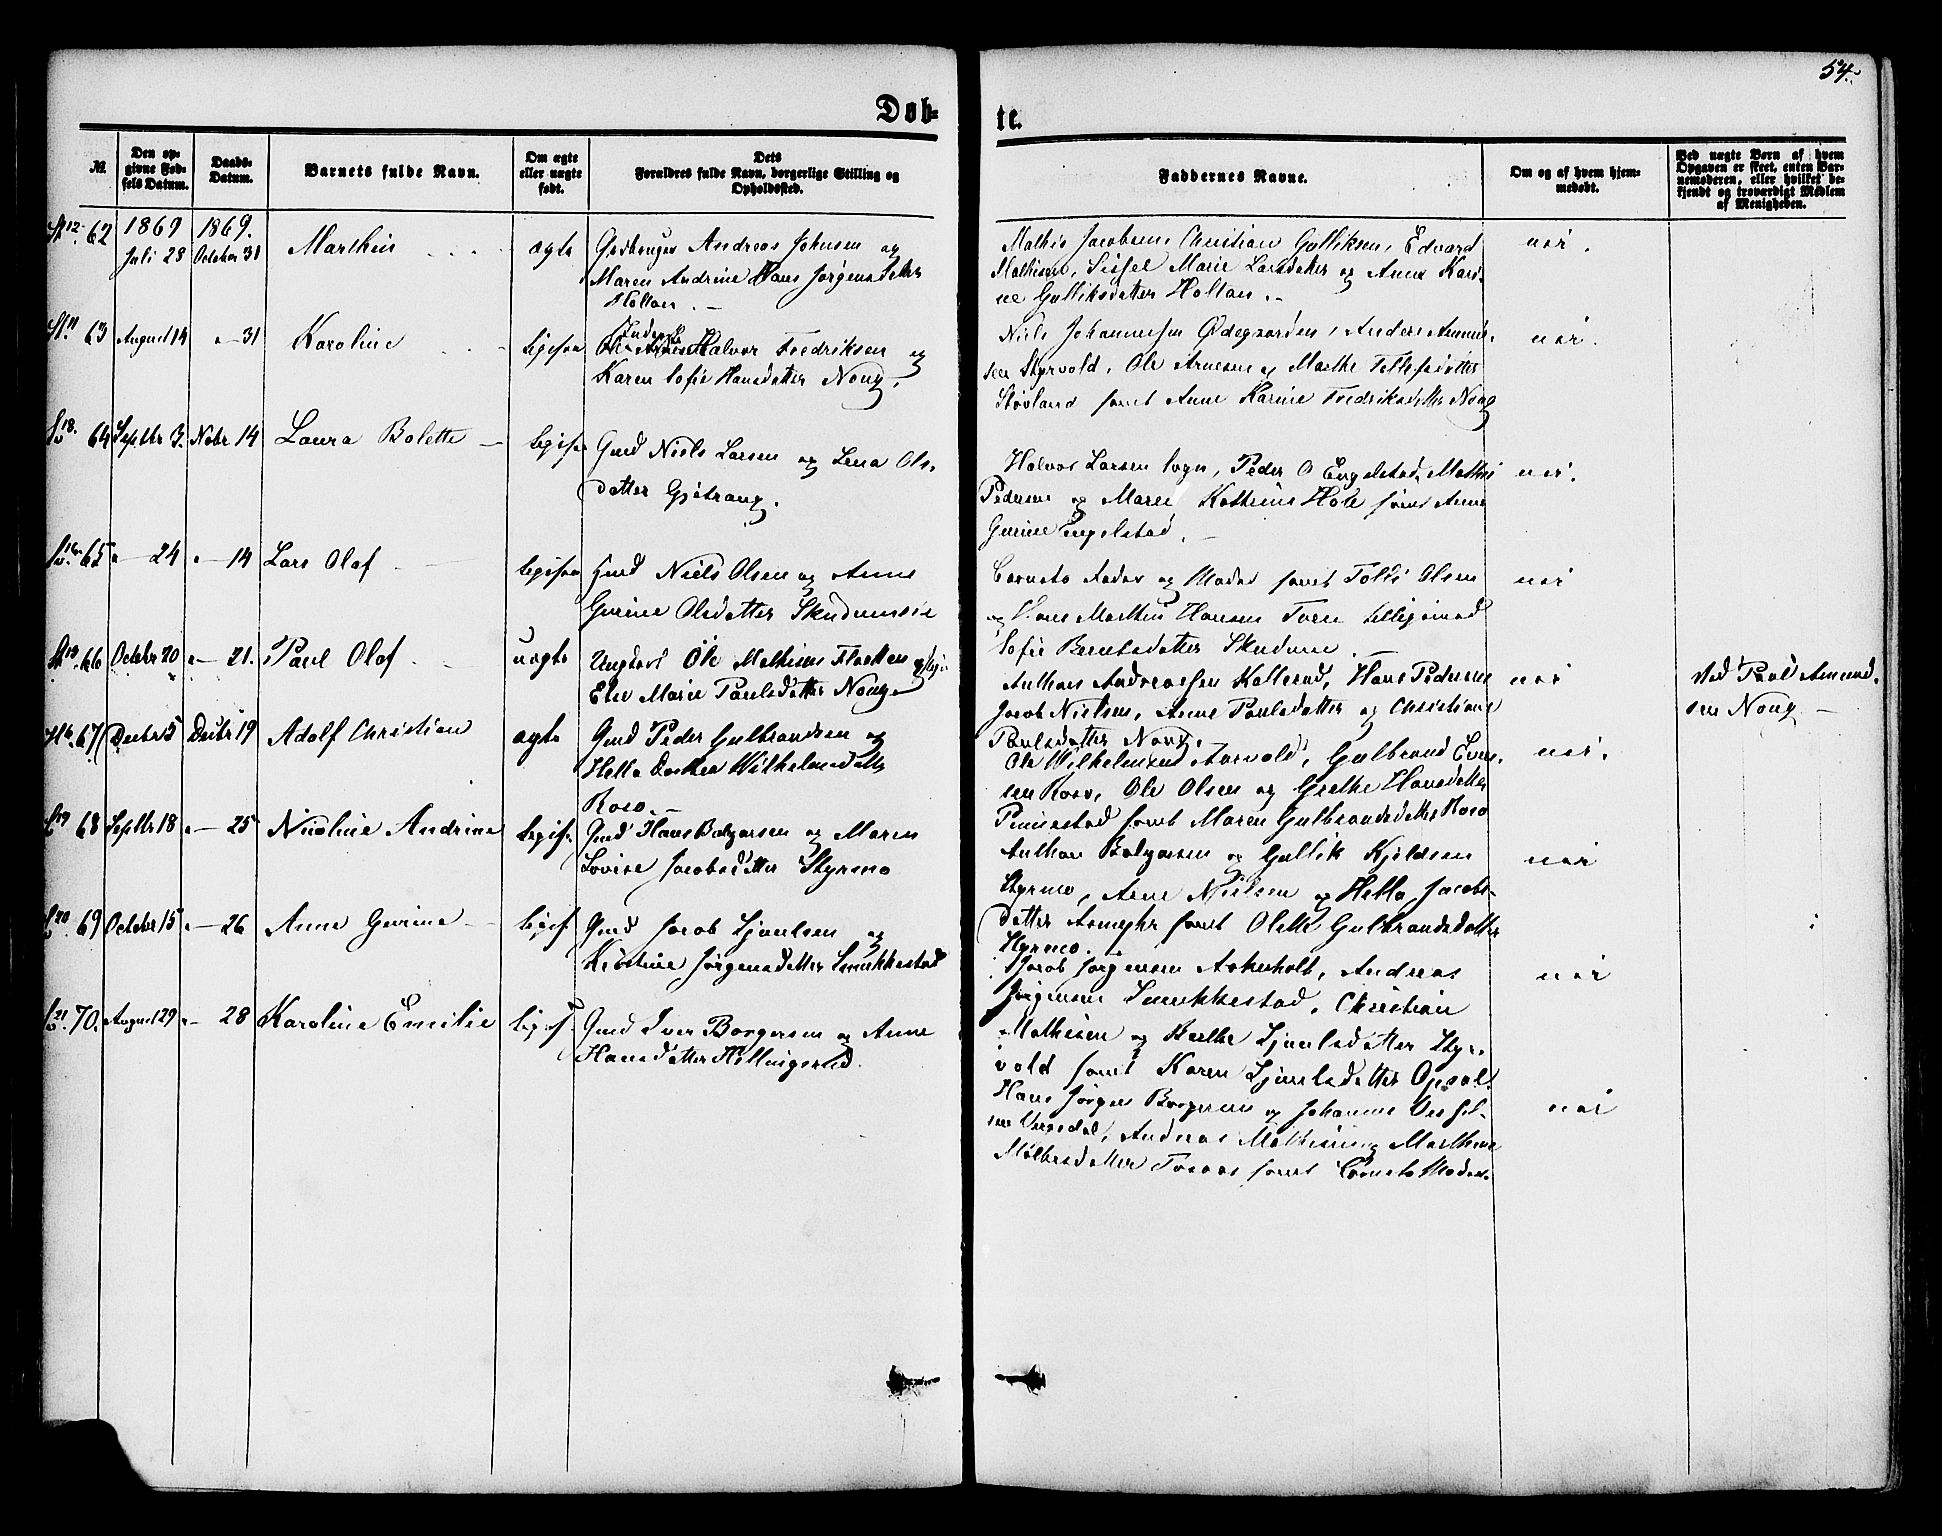 54.
Døb-
te.
№
Den op-
givne Fød-
sels Datum.
Daabs-
Datum.
Barnets fulde Navn.
Om ægte
eller uægte
født.
Dets
Forældres fulde Navn, borgerlige Stilling og
Opholdssted.
Faddernes Navne.
Om og af hvem hjem-
medøbt.
Ved uægte Børn af hvem
Opgaven er skeet, enten Bar-
nemoderen, eller hvilket be-
kjendt og troværdigt Medlem
af Menigheden.
1869 1869.
62 Juli 28 October 31 Marthin ægte Gbruger Andreas Johnsen og
Maren Andrine Hans Jørgensdatter
Holtan.
Mathis Jacobsen, Christian Gulliksen, Edvard
Mathisen, Sissel Marie Larsdatter og Anne Kari-
ne Gulliksdatter Holtan.
nei.
63 August 14 - 31 Karoline ligesaa Halvor Fredriksen og
Karen Sofie Hansdatter Noug.
Niels Johannesen Ødegaarden, Anders Amund-
sen Styrvold, Ole Arnesen og Marthe Tellefsdatter
Støvland samt Anne Karine Fredriksdatter Noug
nei.
64 Septbr 3. Novbr 14 Laura Bolette ligesaa Gmd Niels Larsen og Lena Ols-
datter Gjetrang.
Halvor Larsen Sogn, Peder O Engelstad, Mathis
Pedersen og Maren Kathrine Hole samt Anne
Gurine Engelstad.
nei.
65 - 24 - 14 Lars Olaf ligesaa Gmd Niels Olsen og Anne
Gurine Olsdatter
Barnets Fader og Moder samt Tolli Olsen
og Hans Marthin Hansen tilligemed
Sofie Berntsdatter
nei
66 October 20 - 21. Paul Olaf uægte Ungkarl Ole Mathisen og Pige
Else Marie Paulsdatter Noug
Anthon Andreassen Kallerud, Hans Pedersen
Jacob Nielsen, Anne Paulsdatter og Christiane
Paulsdatter Noug.
nei
Ved Paul Amund-
sen Noug
67 Decbr 5 Decbr 19 Adolf Christian ægte Gmd Peder Gulbrandsen og
Helle Dorthea Wilhelmsdatter
Roso
Ole Wilhelmsen Aarvold, Gulbrand Even-
sen Roso, Ole Olsen og Grethe Hansdatter
samt Maren Gulbrandsdatter Roso
nei.
68 Septbr 18 - 25 Nicoline Andrine ligesaa Gmd Hans Balzersen og Maren
Lovise Jacobsdatter Styrmo
Anthon Balzersen og Gullik Kjeldsen
Styrmo, Arne Nielsen og Helle Jacobs-
datter samt Olette Gulbrandsdatter
Styrmo.
nei
69 October 15 - 26 Anne Gurine ligesaa Gmd Jacob Ljøulsen og
Kirstine Jørgensdatter Smukkestad
Jacob Jørgensen Askeholt, Andreas
Jørgensen Smukkestad, Christian
Mathisen og Ljøulsdatter Styr-
vold samt Karen Ljøulsdatter Opsal
nei
70. August 29 - 28 Karoline Emilie ligesaa Gmd Iver Borgersen og Anne
Hansdatter Hellingsrud.
Hans Jørgen Borgersen og Johannes
Andreas Mathisen og Marthine
samt Barnets Moder.
nei